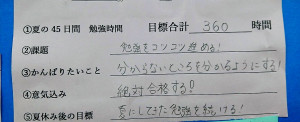 ①夏の45日間 勉強時間 目標合計 360 時間
②課題 勉強をコツコツ進める!
③がんばりたいこと 分からないところを分かるようにする!
④意気込み 絶対合格する!!
⑤夏休み後の目標 夏にしてきた勉強を続ける!